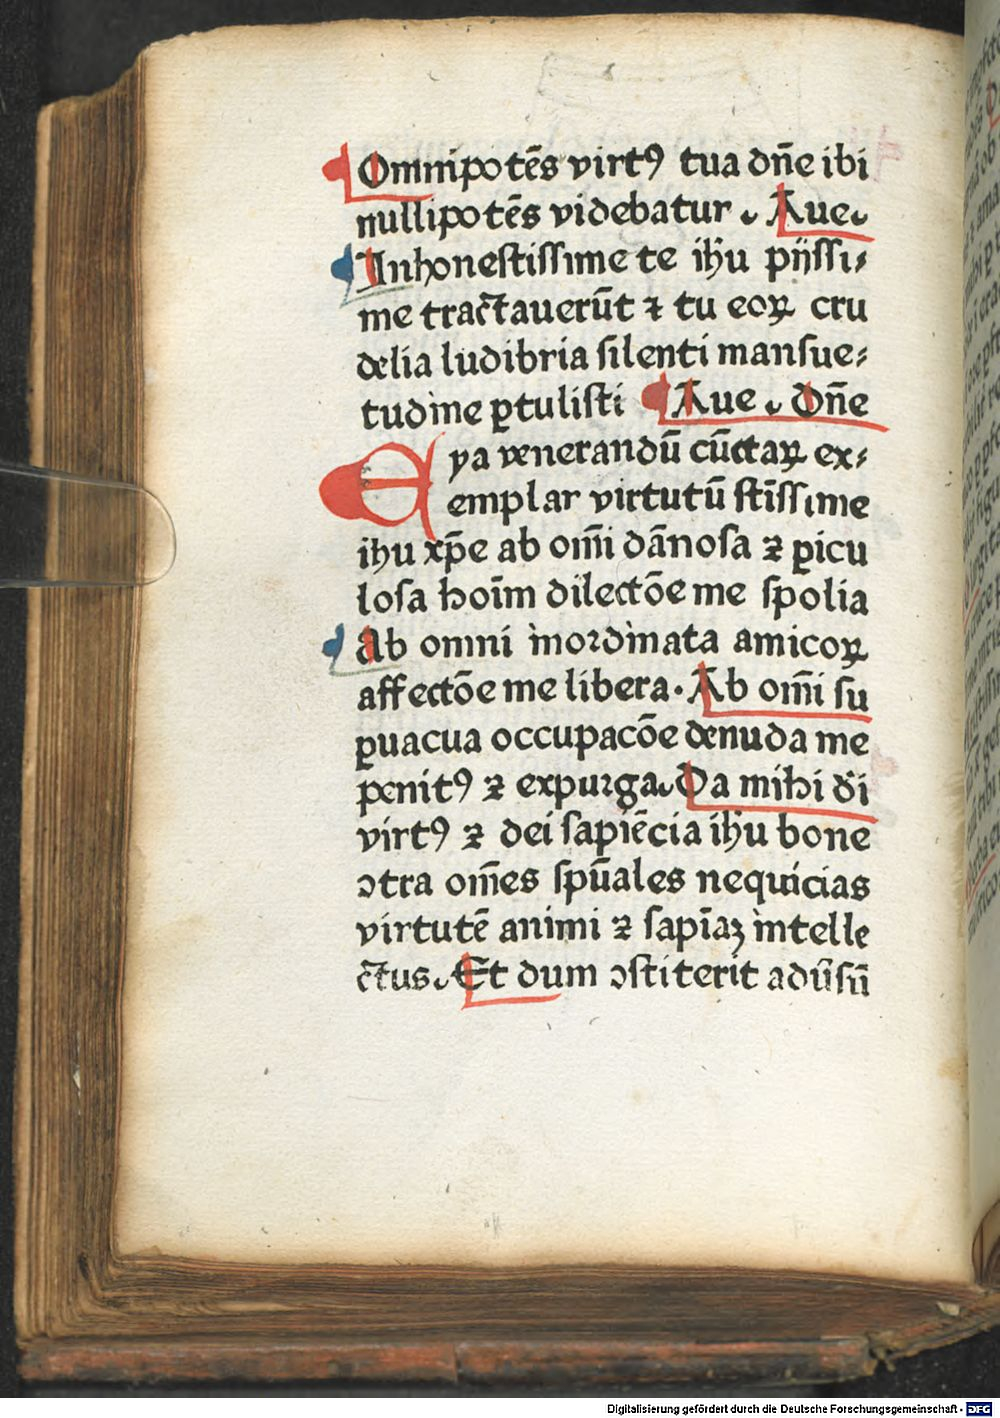 Omnipotēs virtꝰ tua dn̄e ibi
nullipotēs videbatur. Aue.
Inhonestissime te ihū pijssi⸗
me tractauerūt ⁊ tu eoꝝ cru
delia ludibria silenti mansue⸗
tudine ꝑtulisti Aue. Dn̄e
Eya venerandū cūctaꝝ ex⸗
emplar virtutū stīssime
ihu xp̄e ab om̄i dānosa ⁊ ꝑicu
losa hoīm dilectōe me spolia
Ab omni inordinata amicoꝝ
affectōe me libera. Ab om̄i su
ꝑuacua occupacōe denuda me
penitꝰ ⁊ expurga. Da mihi d̄i
virtꝰ ⁊ dei sapiēcia ihū bone
ↄtra om̄es sp̄uales nequicias
virtutē animi ⁊ sapīaꝫ intelle
ctus. Et dum ↄstiterit adūsū
Digitalisierung gefördert durch die Deutsche Forschungsgemeinschaft - DFG